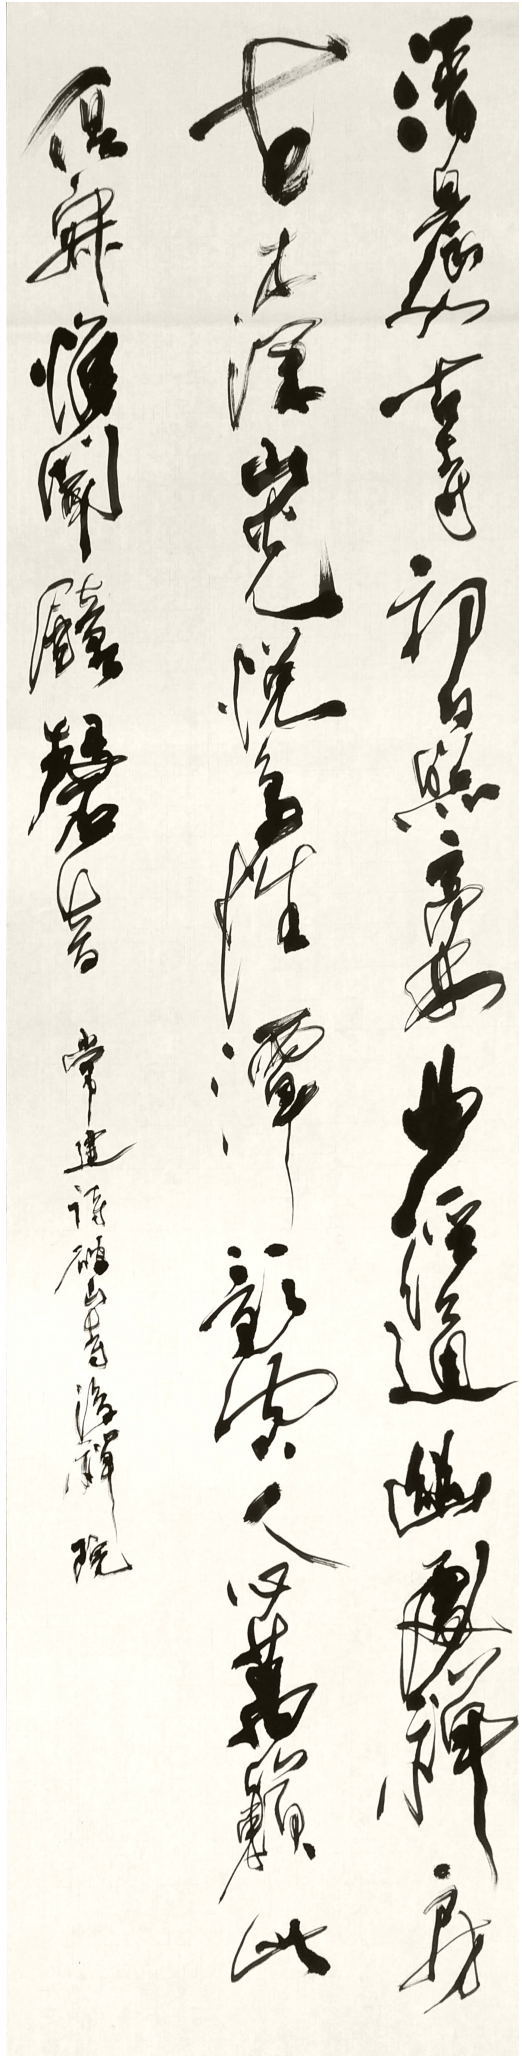 清晨入古寺初日照高林曲徑通幽處禪房
花木深山光悅鳥性潭影空人心萬籟此
俱寂惟聞鐘磬音 常建詩破山寺後禪院